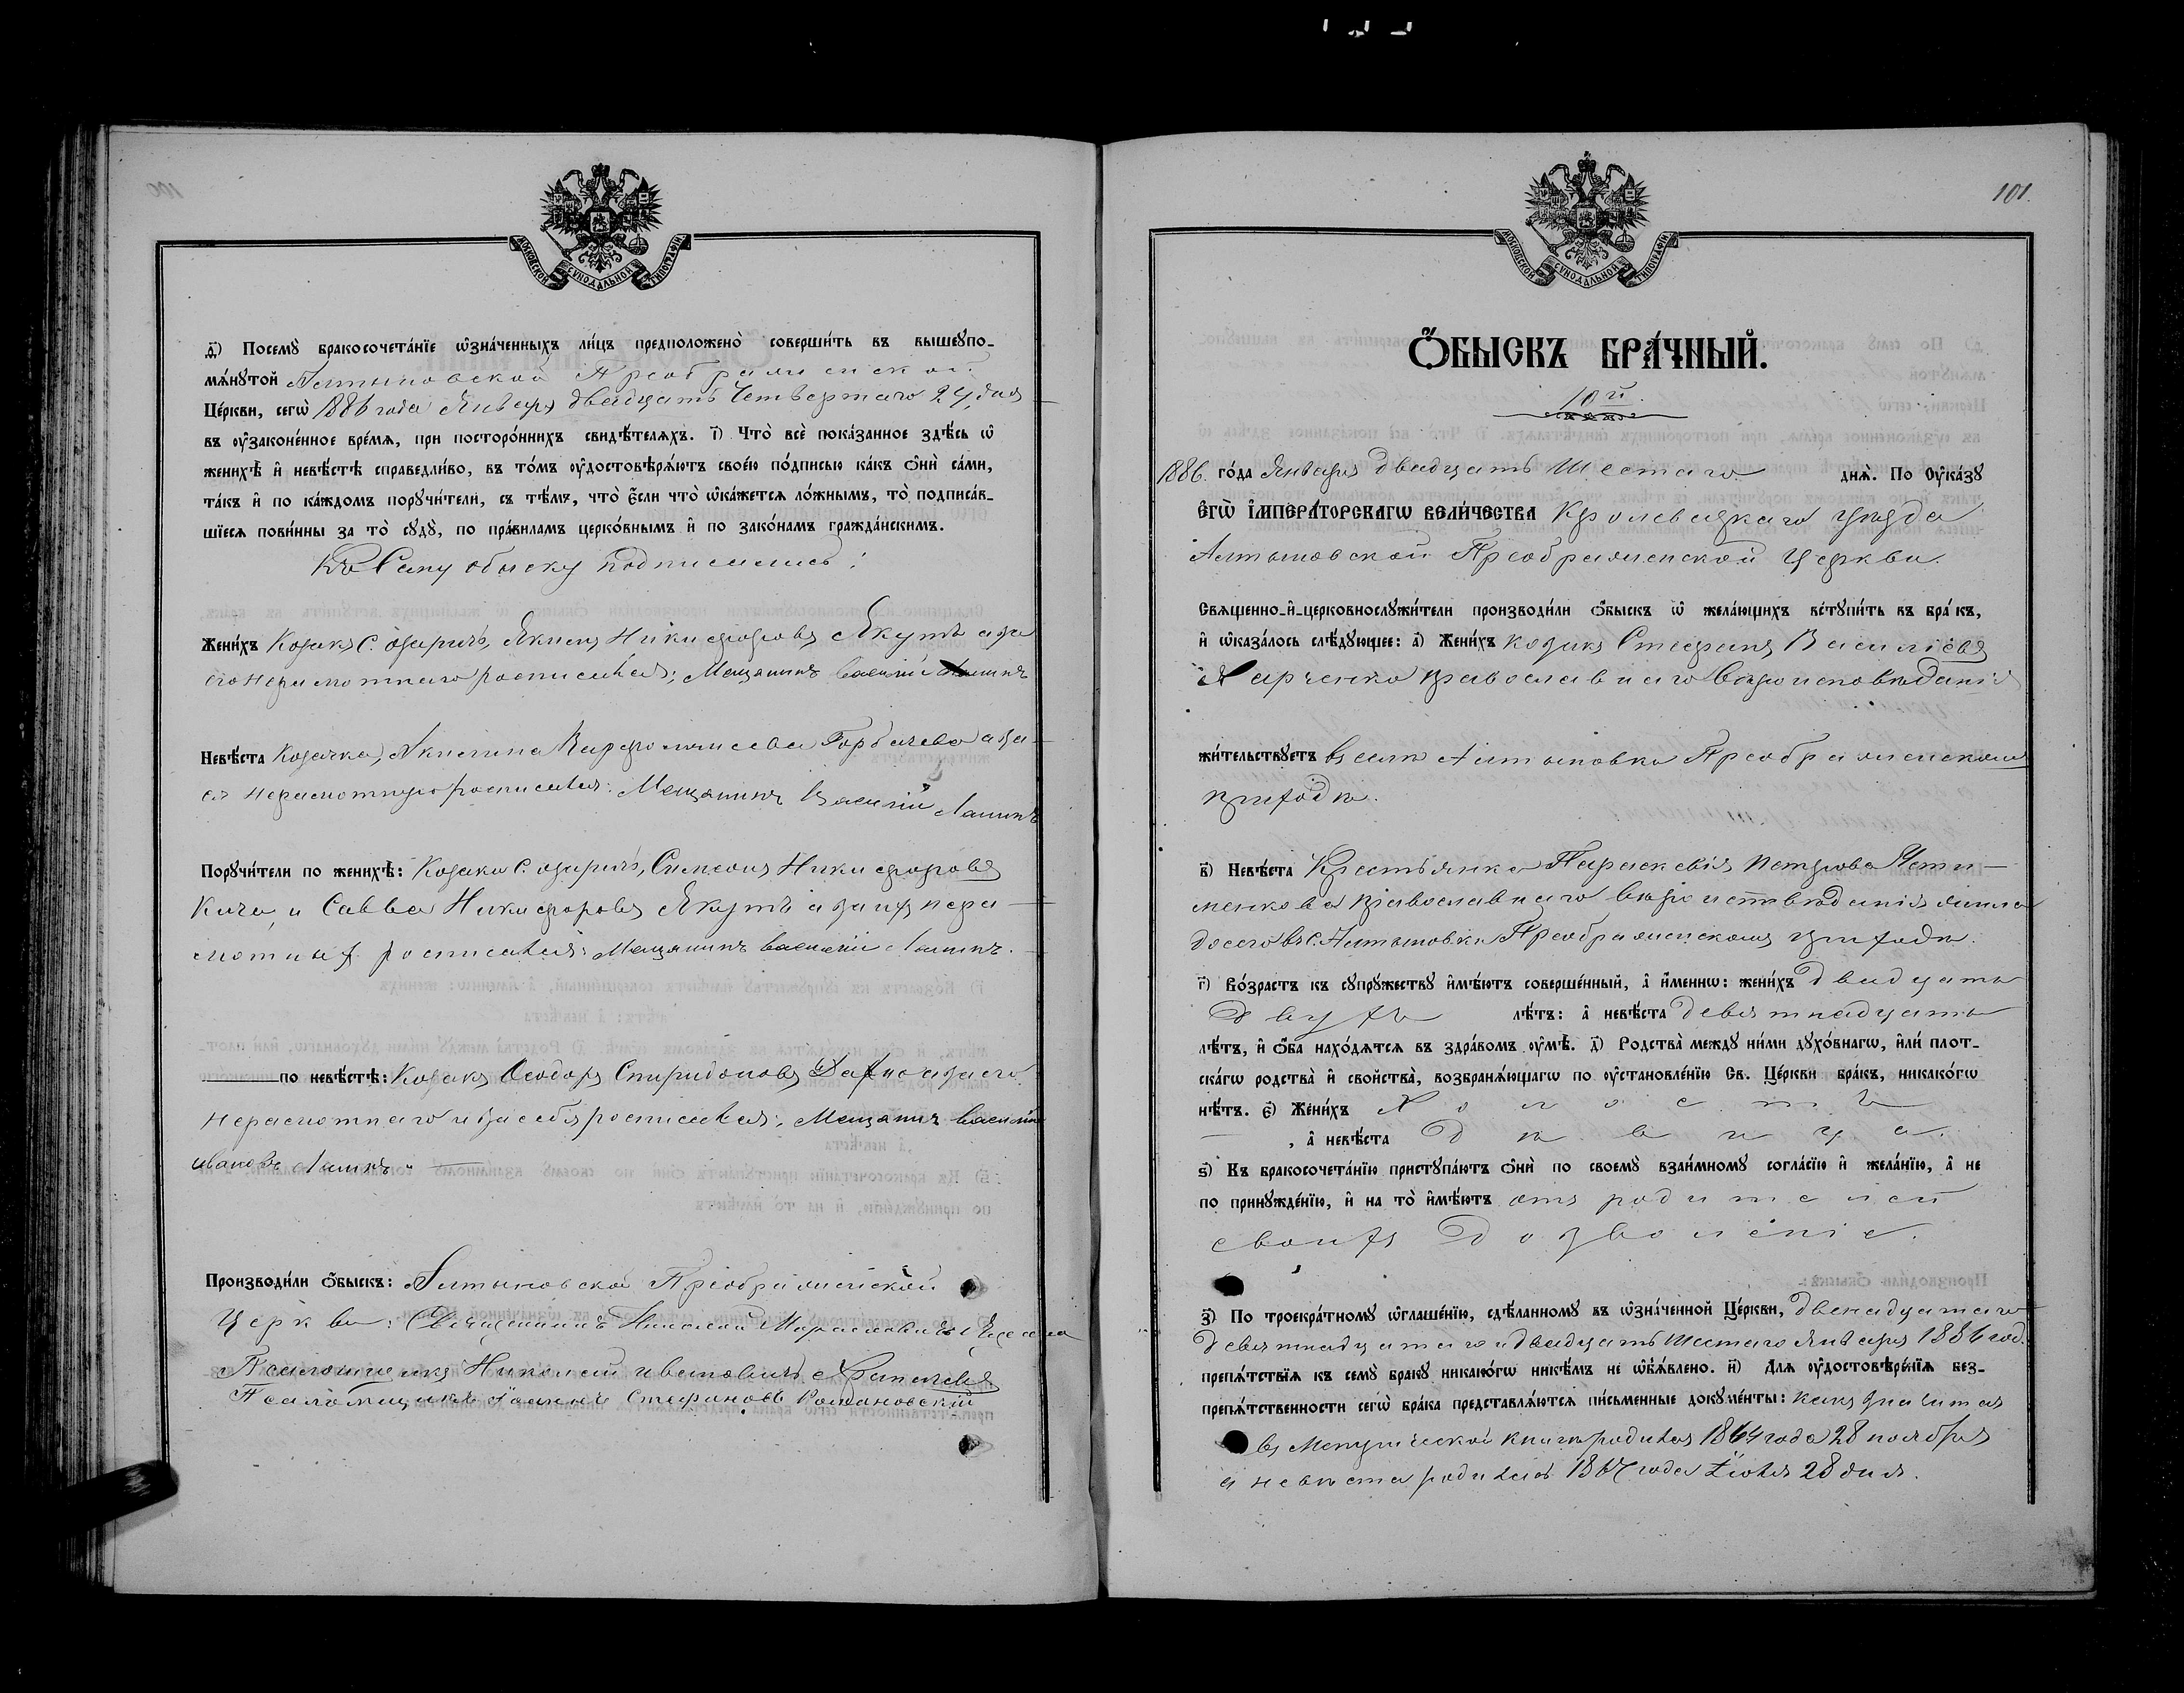 МОСКОВСКОЙ СУНОДАЛЬНОЙ ТИПОГРАФІИ
ѳ҃) Посемꙋ̀ бракосочета́нїе ѡ҆зна́ченныхъ ли́цъ предположено̀ соверши́ть въ вышеꙋпо-
мѧ́нꙋтой Алтыновской Преображенской
Це́ркви, сегѡ̀ 1886 года Января двадцать Четвертаго 24, дня
въ оу҆законе́нное вре́мѧ, при посторо́ннихъ свидѣ́телѧхъ. і҃) Что̀ всѐ пока́занное здѣ́сь ѡ҆
женихѣ̀ и҆ невѣ́стѣ справедли́во, въ то́мъ оу҆достовѣрѧ́ютъ свое́ю по́дписью ка́къ ѻ҆нѝ са́ми,
та́къ и҆ по ка́ждомъ порꙋчи́тели, съ тѣ́мъ, что̀ є҆́сли что̀ ѡ҆ка́жетсѧ ло́жнымъ, то̀ подписа́в-
шїесѧ пови́нны за то̀ сꙋдꙋ̀, по пра́виламъ церко́внымъ и҆ по зако́намъ гражда́нскимъ.
Къ Сему обыску подписались:
Жени́хъ Козакъ С. Якимъ Никифоровъ Якутъ а за
его неграмотнаго росписался: Мещанинъ Василій
Невѣ́ста Козачка, Акилина Варфоломеева Горбачева а за
ея неграмотную росписался: Мещанинъ Василій
Порꙋчи́тели по женихѣ̀: Козаки С. Симеонъ Никифоровъ
и Савва Никифоровъ Якутъ а за ихъ негра-
мотныхъ росписался: Мещанинъ Василій
по невѣ́стѣ: Козакъ Ѳеодоръ Спиридоновъ а за его
неграмотнаго и за себя росписался: Мещанинъ Василій
Ивановъ
Производи́ли ѻ҆́быскъ: Алтыновской Преображенской
Церкви: Священникъ Николай
Псаломщикъ Николай Ивановичъ
Псаломщикъ Іоаннъ Стефановъ Романовскій
101.
МОСКОВСКОЙ СУНОДАЛЬНОЙ ТИПОГРАФІИ
Ѻ҆́БЫСКЪ БРА́ЧНЫЙ.
10й.
1886. го́да Января двадцать Шестаго днѧ̀. По Оу҆ка́зꙋ
Є҆ГѠ̀ І҆МПЕРА́ТОРСКАГѠ ВЕЛИ́ЧЕСТВА Кролевецкаго уѣзда
Алтыновской Преображенской Церкви.
Свѧще́нно-и҆-церковнослꙋжи́тели производи́ли ѻ҆́быскъ ѡ҆ жела́ющихъ встꙋпи́ть въ бра́къ,
и҆ ѡ҆каза́лось слѣ́дꙋющее: а҃) Жени́хъ козакъ Стефанъ Василіевъ
Харченко православнаго вѣроисповѣданія
жи́тельствꙋетъ въ селѣ Алтыновкѣ Преображенскомъ
приходѣ.
в҃) Невѣ́ста Крестьянка Параскевія Петрова
православнаго вѣроисповѣданія жила
до сего въ с. Алтыновкѣ Преображенскомъ приходѣ.
г҃) Во́зрастъ къ сꙋпрꙋ́жествꙋ и҆мѣ́ютъ соверше́нный, а҆ и҆́меннѡ: жени́хъ двадцать
двухъ лѣ́тъ: а҆ невѣ́ста девятнадцать
лѣ́тъ, и҆ ѻ҆́ба нахо́дѧтсѧ въ здра́вомъ оу҆мѣ̀. д҃) Родства̀ междꙋ ни́ми дꙋхо́внагѡ, и҆лѝ плот-
ска́гѡ родства̀ и҆ сво́йства̀, возбранѧ́ющагѡ по оу҆становле́нїю Св. Це́ркви бра́къ, никако́гѡ
нѣ́тъ. є҃) Жени́хъ Холостъ
, а҆ невѣ́ста дѣвица.
ѕ҃) Къ бракосочета́нїю пристꙋпа́ютъ ѻ҆нѝ по своемꙋ̀ взаи́мномꙋ согла́сїю и҆ жела́нїю, а҆ не
по принꙋжде́нїю, и҆ на то̀ и҆мѣ́ютъ отъ родителей
своихъ дозволеніе.
з҃) По троекра́тномꙋ ѡ҆глаше́нїю, сдѣ́ланномꙋ въ ѡ҆зна́ченной Це́ркви, двенадцатаго
девятнадцатаго и двадцать шестаго Января 1886 год.
препѧ́тствїѧ къ семꙋ̀ бра́кꙋ никако́гѡ никѣ́мъ не ѡ҆б̾ѧ́влено. и҃) Длѧ оу҆достовѣре́нїѧ без-
препѧ́тственности сегѡ̀ бра́ка представлѧ́ютсѧ пи́сьменные докꙋме́нты: какъ значится
въ Метрической книгѣ родился 1864 года 28 ноября
а невѣста родилась 1867 года Іюля 28 дня.